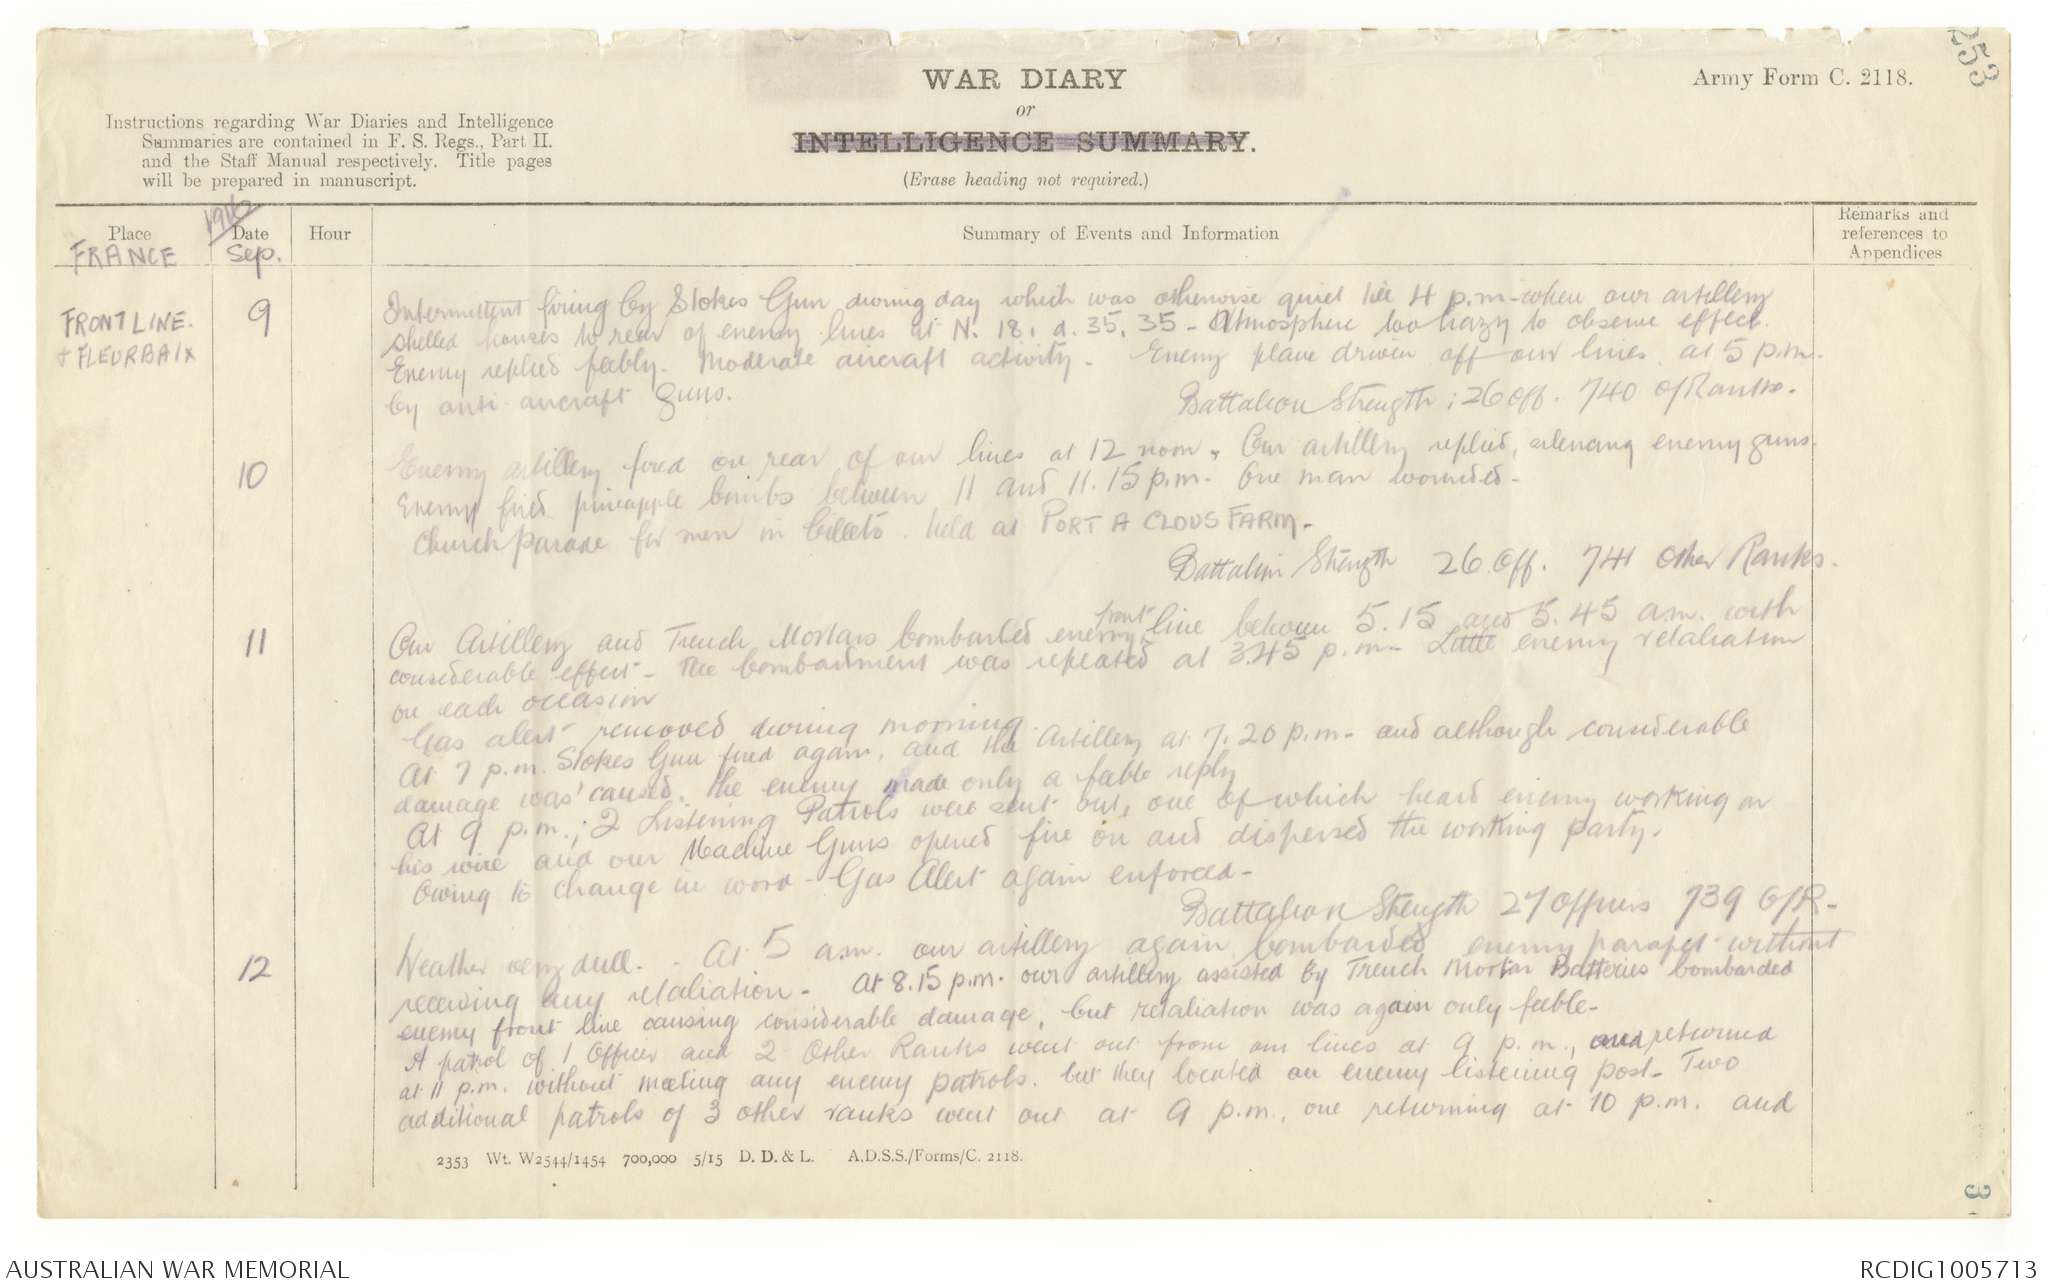 253
WAR DIARY
or
INTELLIGENCE SUMMARY.
(Erase heading not required.)
Army Form C. 2118.
Instructions regarding War Diaries and Intelligence
Summaries are contained in F. S. Regs., Part II.
and the Staff Manual respectively. Title pages
will be prepared in manuscript.
1916
Place
Date
Hour
Summary of Events and Information
Remarks and
references to
Appendices
FRANCE
Sep.
FRONT LINE.
& FLEURBAIX
9
Intermittent firing by Stokes Gun during day which was otherwise quiet till 4 p.m - when our artillery
shelled houses to rear of enemy lines at N. 18. d. 35. 35 - Atmosphere too hazy to observe effect.
Enemy replied feebly. Moderate aircraft activity - Enemy plane driven off our lines at 5 p.m.
by anti-aircraft guns.
Battalion Strength; 26 Off. 740 O/Ranks.
10
Enemy artillery fired on rear of our lines at 12 noon. Our artillery replied, silencing enemy guns.
Enemy fired pineapple bombs between 11 and 11.15 p.m. One man wounded -
Church parade for men in billets held at PORT A CLOUS FARM -
Battalion Strength 26 Off. 741 Other Ranks.
11
Our Artillery and Trench Mortars bombarded enemy front line between 5.15 and 5.45 a.m. with
considerable effect - The bombardment was repeated at 3.45 p.m - Little enemy retaliation
on each occasion
Gas alert removed during morning.
At 7 p.m. Stokes Gun fired again, and the Artillery at 7.20 p.m - and although considerable
damage was caused, the enemy made only a feeble reply
At 9 p.m.; 2 Listening Patrols were sent out, one of which heard enemy working on
his wire and our Machine Guns opened fire on and dispersed the working party.
Owing to change in word - Gas Alert again enforced -
Battalion Strength 27 Officers 739 O/R -
12
Weather very dull. - At 5 a.m. our artillery again bombarded enemy parapet without
receiving any retaliation - At 8.15 p.m. our artillery assisted by Trench Mortar Batteries bombarded
enemy front line causing considerable damage, but retaliation was again only feeble -
A patrol of 1 Officer and 2 Other Ranks went out from our lines at 9 p.m., and returned
at 11 p.m. without meeting any enemy patrols. but they located an enemy listening post - Two
additional patrols of 3 other ranks went out at 9 p.m., one returning at 10 p.m. and
2353 Wt. W2544/1454 700,000 5/15 D. D. & L. A.D.S.S./Forms/C. 2118.
3
AUSTRALIAN WAR MEMORIAL
RCDIG1005713